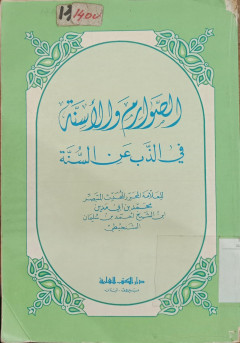 1400
الصوارم والأسنة
في الذب عن السنة
للعلامة المحدث
محمد بن أبي مدين
ابن الشيخ أحمد بن سليمان
الشنقيطي
دار الكتب العلمية